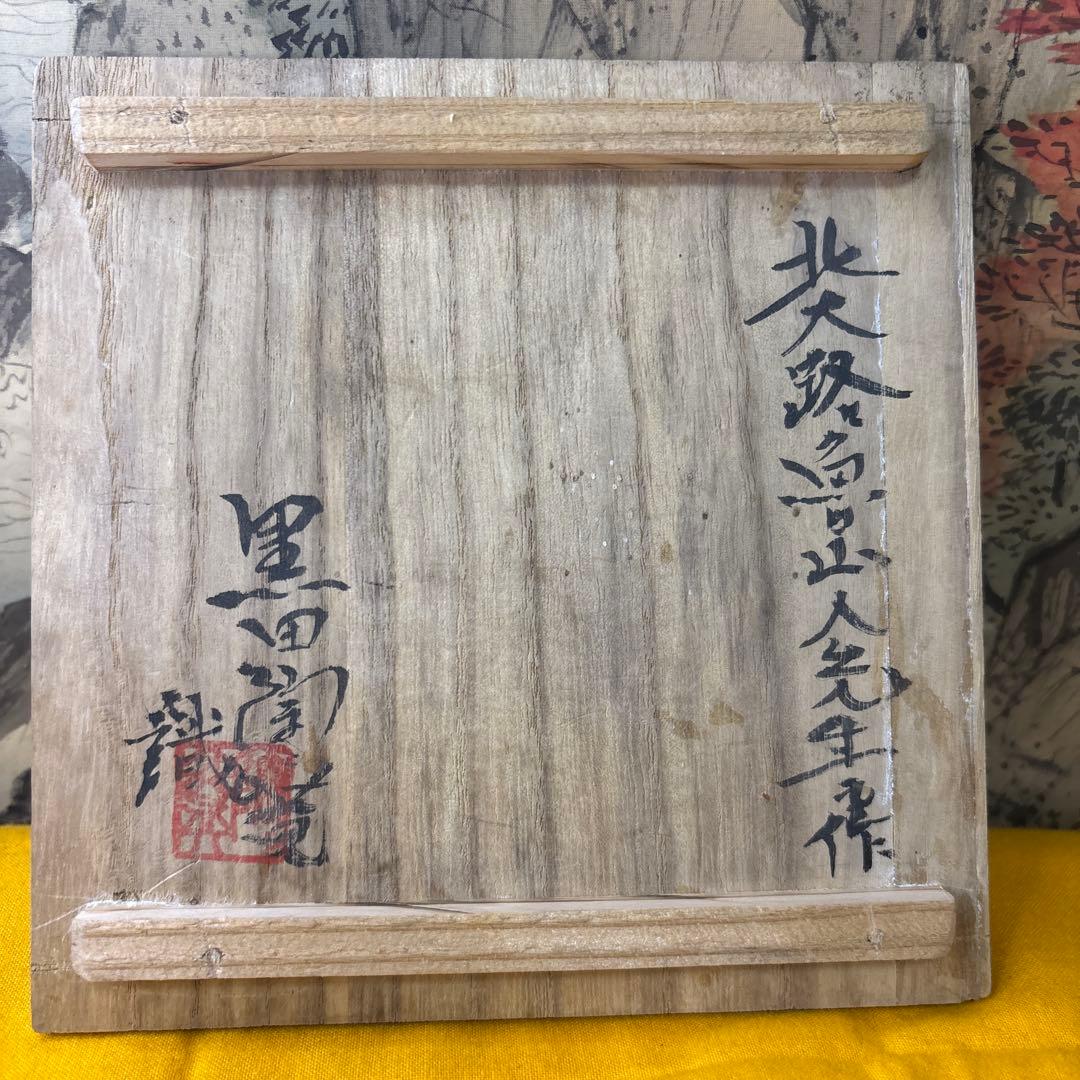 北大路魯山人先生作
黒田陶々菴
識